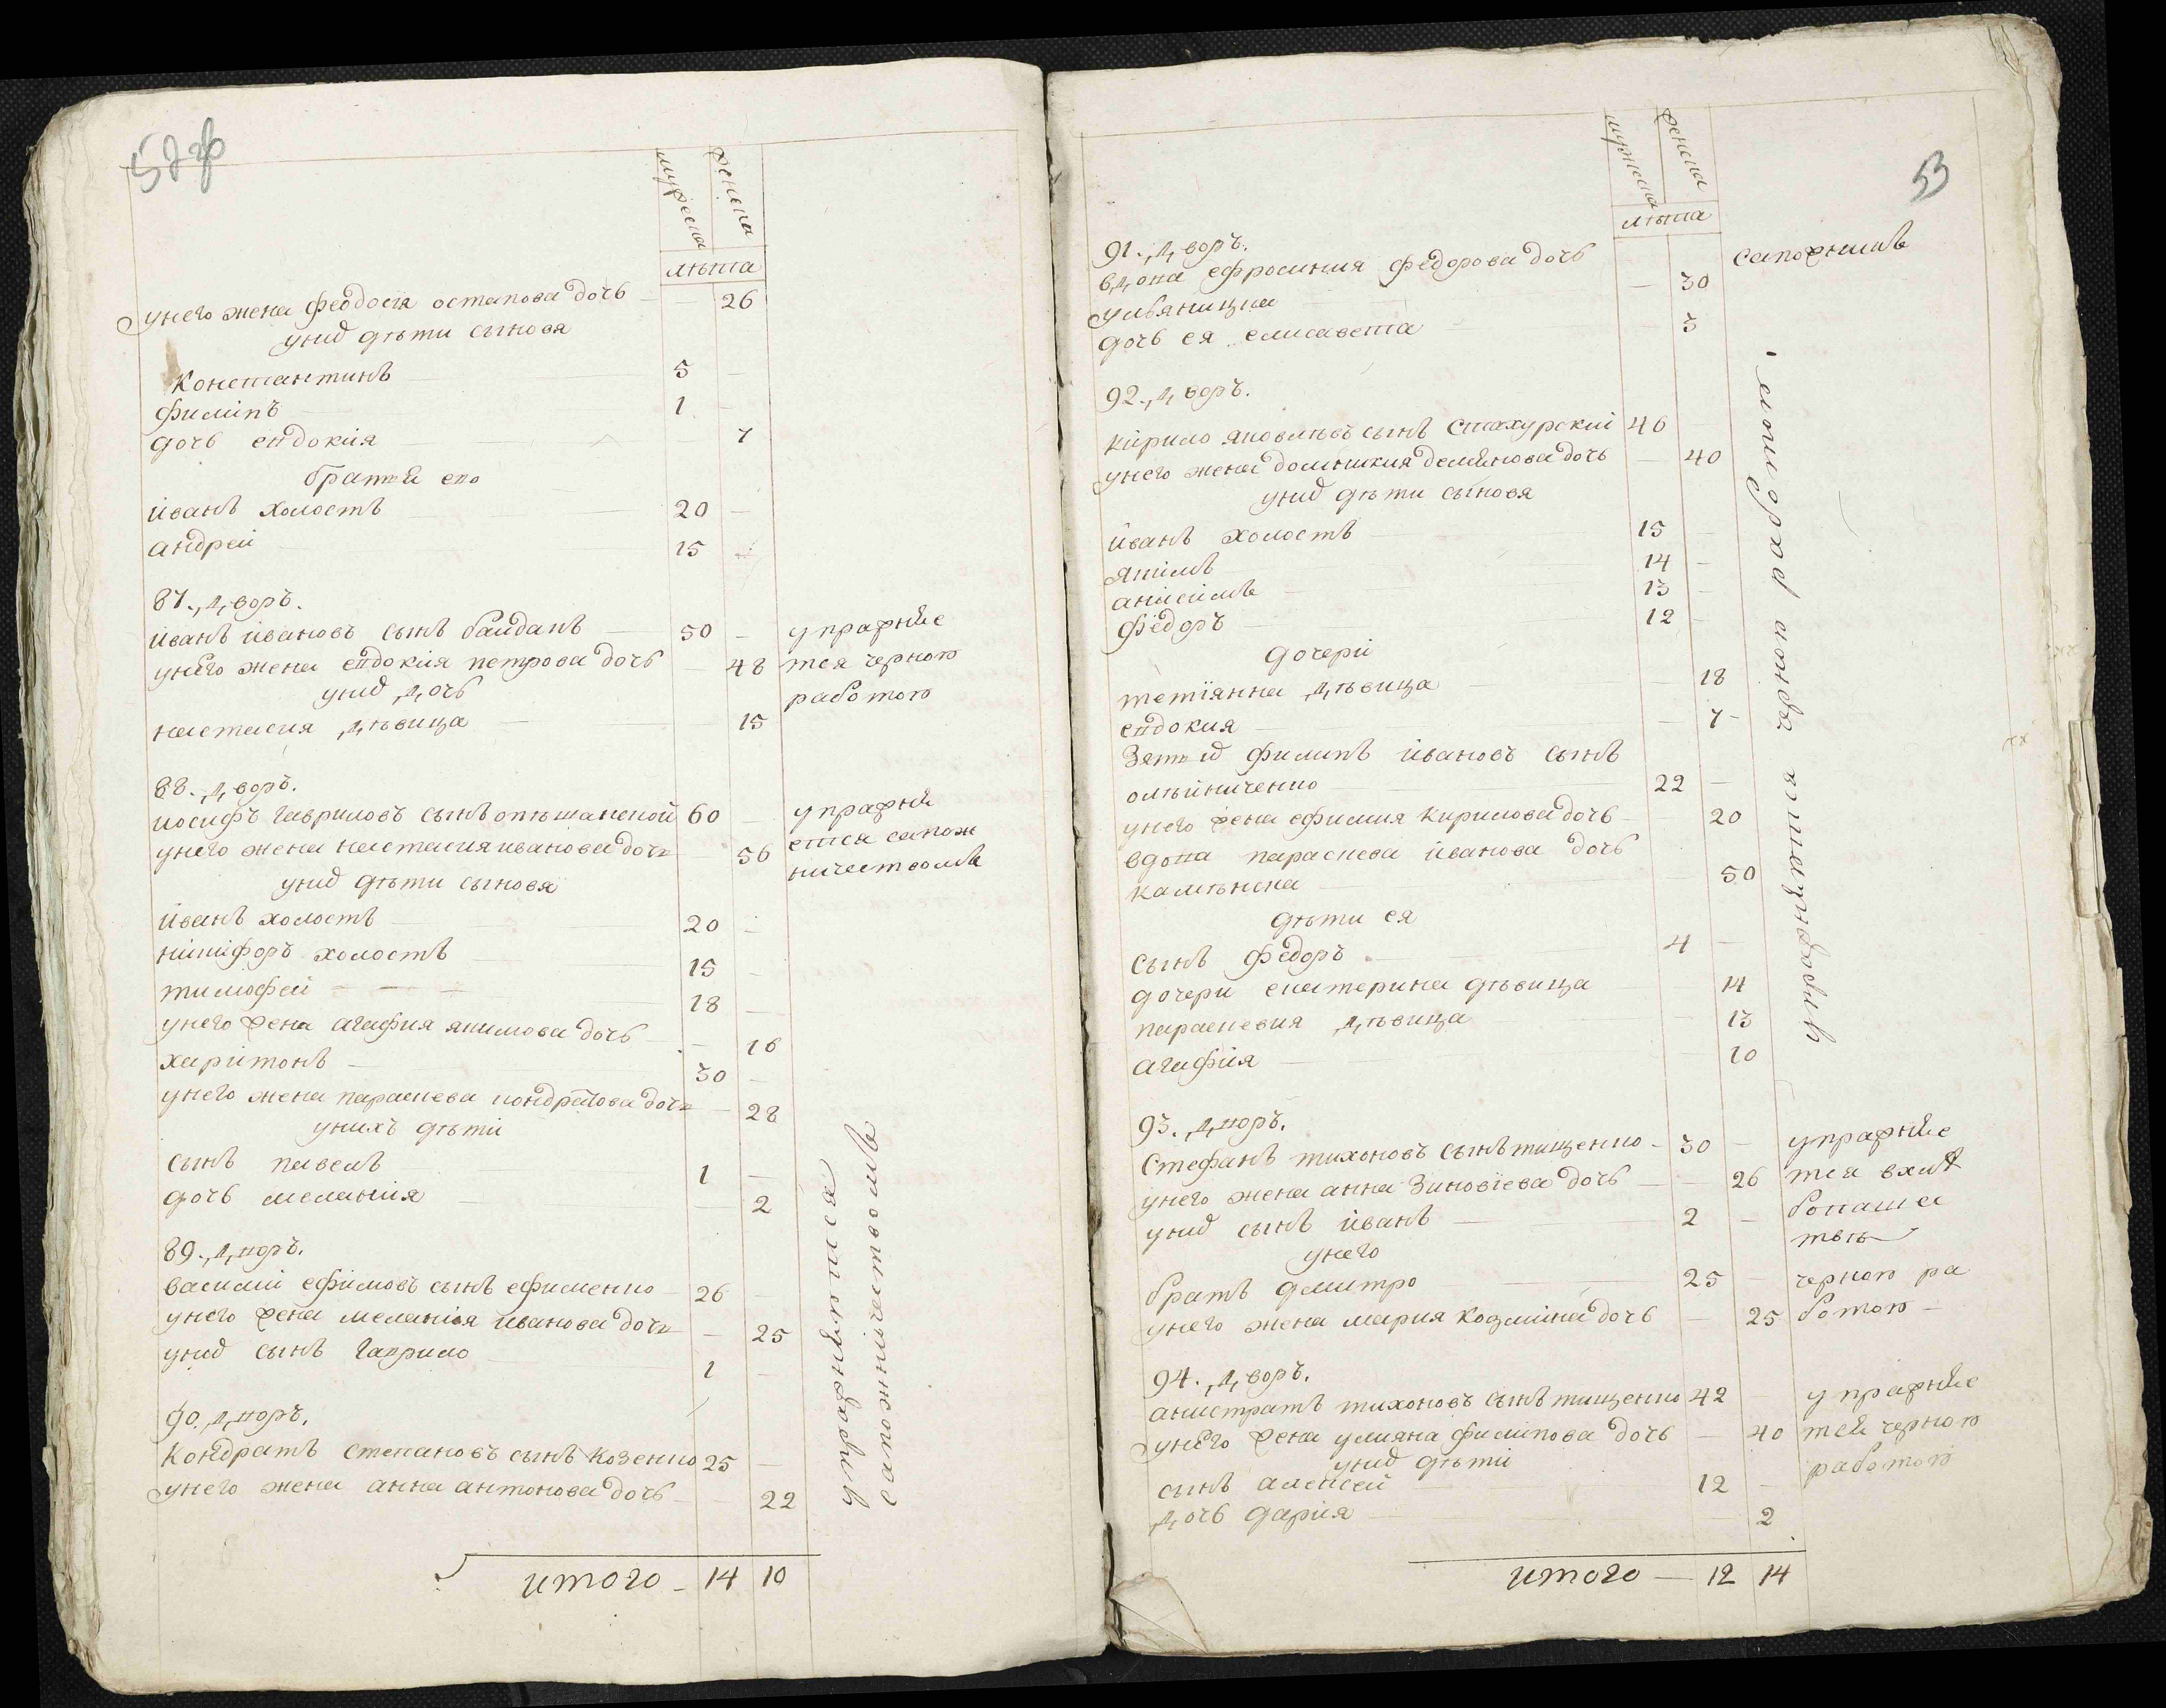 мужеска женска
лѣта
унего жена феодосія остапова дочь — 26
унихъ дѣти сыновя
Константинъ 5 —
филіпъ 1 —
дочь евдокия 7
братья его
иванъ холостъ 20 —
андрей 15 —
87. дворъ.
иванъ ивановъ сынъ байдакъ 50 — упражняе
унего жена евдокия петрова дочь — 48 тся черною
унихъ дочь работою
настасия дѣвица 15
88. дворъ.
иосифъ гавриловъ сынъ опѣшанской 60 — упражня
унего жена настасия иванова дочь 56 ется сапож
унихъ дѣти сыновя ничествомъ
иванъ холостъ 20 —
никифоръ холостъ 15 —
тимофей 18 —
унего жена агафия якимова дочь — 16
харитонъ 30 —
унего жена параскева кондратова дочь — 28
унихъ дѣти
сынъ павелъ 1 —
дочь мелания — 2
89. дворъ.
василий ефимовъ сынъ ефименко 26 —
унего жена мелания иванова дочь — 25
унихъ сынъ гаврило 1 —
90. дворъ.
Кондратъ степановъ сынъ козенко 25 —
унего жена анна антонова дочь — 22
упражняются
сапожничествомъ
итого — 14 10
53
мужеска женска
лѣта
91. дворъ. сапожникъ
вдова ефросиния федорова дочь — 30
дочь ея елисавета 3
92. дворъ.
кирило яковлевъ сынъ стахурский 46
унего жена домникия демянова дочь — 40
унихъ дѣти сыновя
иванъ холостъ 15 —
якимъ 14 —
анисимъ 13 —
федоръ 12 —
дочери
тетіянна дѣвица — 18
евдокия — 7 —
Зять ихъ филипъ ивановъ сынъ
олѣйниченко 22 —
унего жена ефимия кирилова дочь — 20
вдова параскева иванова дочь
50
дѣти ея
сынъ федоръ 4 —
дочери екатерина дѣвица 14
параскевия дѣвица — 13
агафия — 10
упражняются черною работою.
93. дворъ.
стефанъ тихоновъ сынъ тищенко — 30 — упражняе
унего жена анна Зиновіева дочь — 26 тся вхлѣ
унихъ сынъ иванъ 2 — бопаше
унего
братъ дмитро 25 — черною ра
унего жена мария козмина дочь — 25 ботою —
94. дворъ.
анистратъ тихоновъ сынъ тищенко 42 — упражняе
унего жена улияна филипова дочь — 40 тся черною
унихъ дѣти работою
сынъ алексей 12 —
дочь дария 2
итого — 12 14